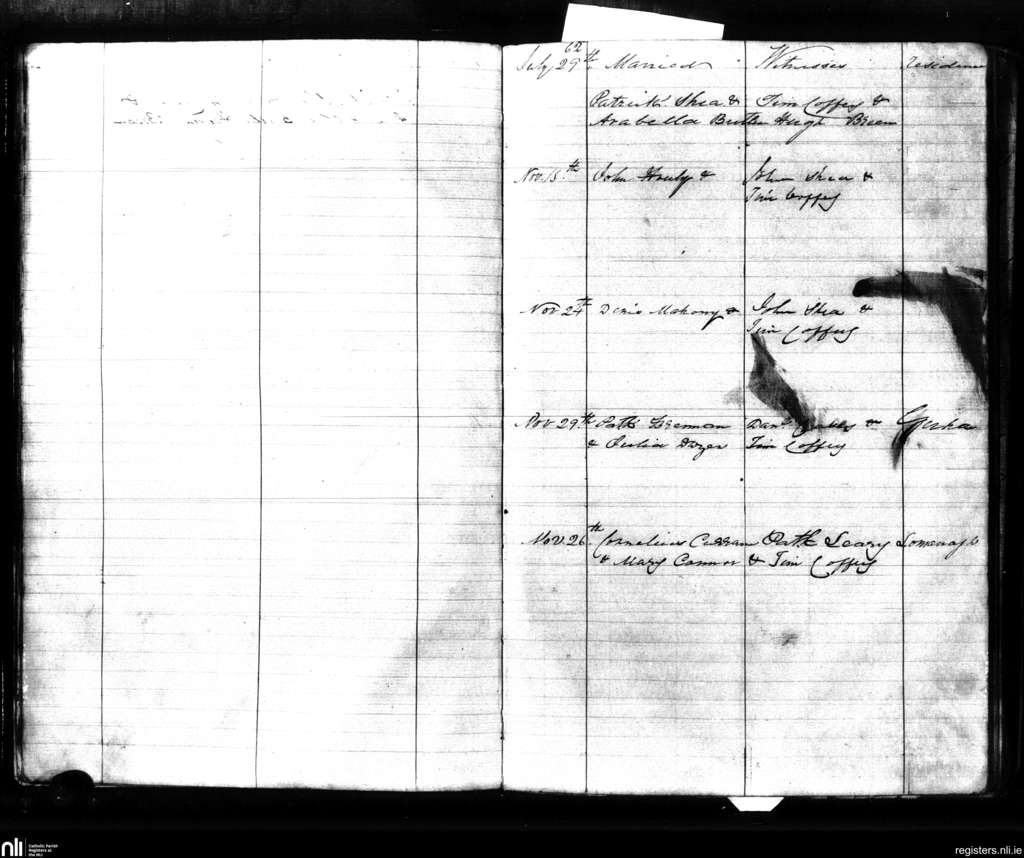 62
July 29th Married Witnesses Residence
Patrick Shea & Tim Coffey &
Arabella Butler Hugh Breen
Nov. 15th John & John Shea &
Tim Coffey
Nov 24th Denis Mahony & John Shea &
Tim Coffey
Nov 29th Patk Dan &
& Julia Dwyer Tim Coffey
Nov 26th Cornelius Curran Patk Leary
& Mary Connor & Tim Coffey
nli Catholic Parish
Registers at
the NLI
registers.nli.ie